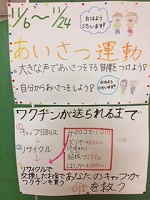 11/6〜11/24
おはようございます!
おはようございます
あいさつ運動
大きな声であいさつをする習慣をつけよう!
自分からあいさつをしよう!
ワクチンが送られるまで
キャップ回収
リサイクル
リサイクルで
交換したお金で
ワクチンを買う
あなたのキャップが
命を救う